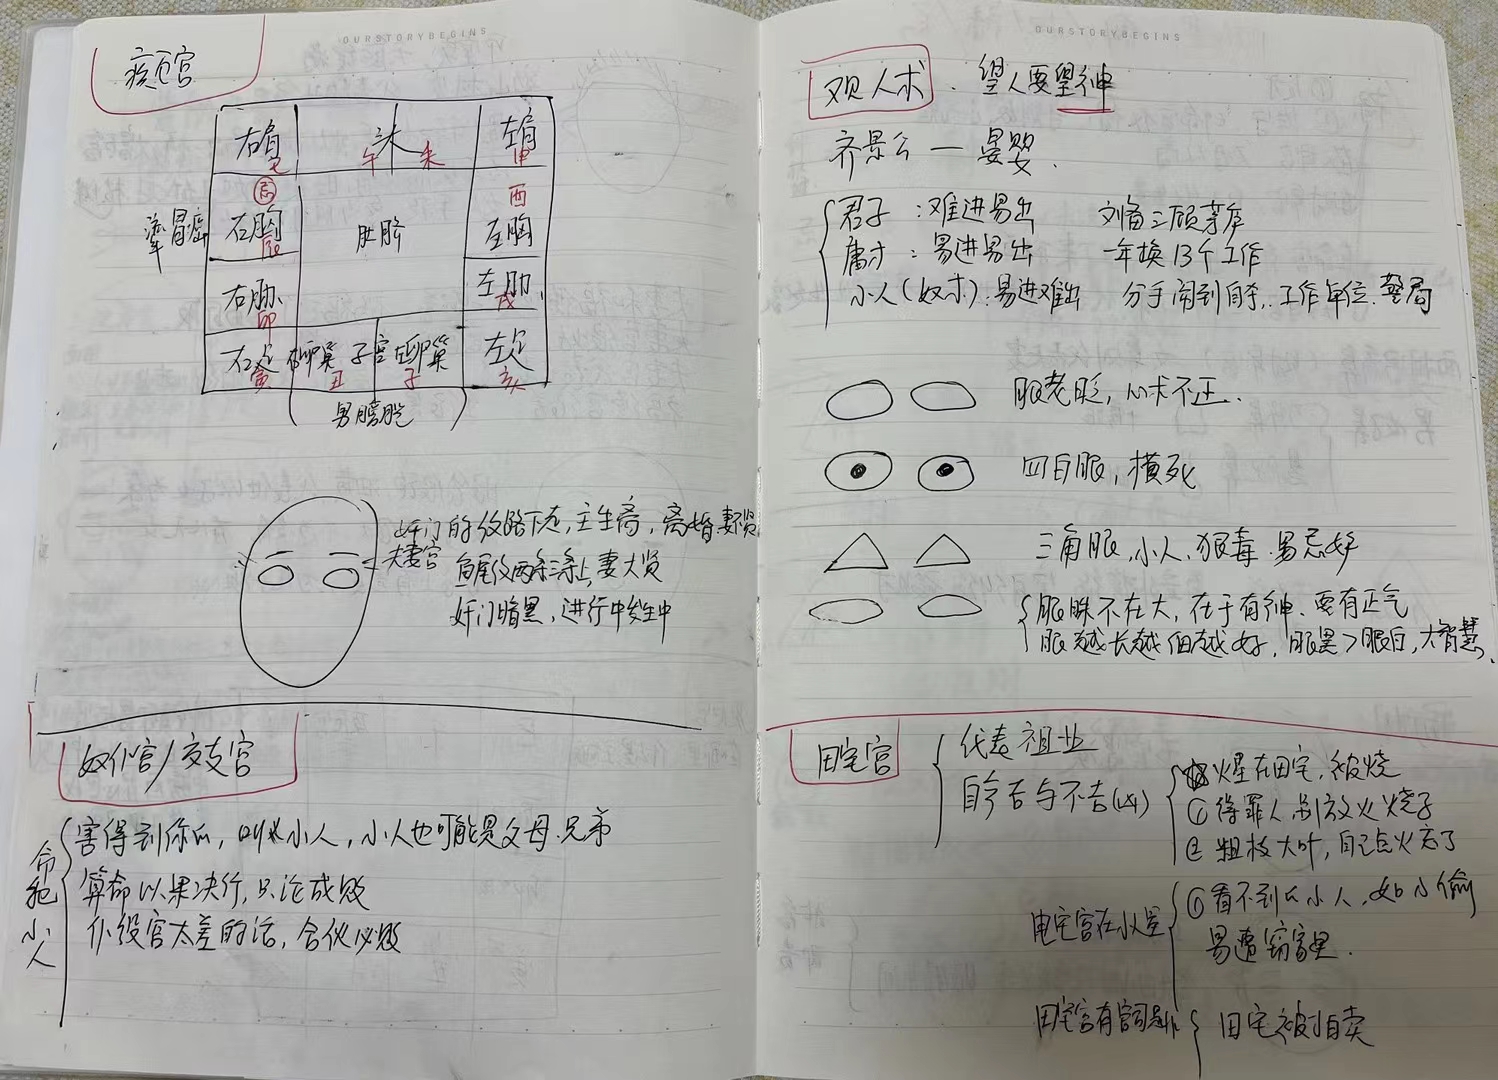 OURSTORYBEGINS
疾厄宫
右肩 头 左肩
巳 午 未 申
局 酉
右胸 肚脐 左胸
辰
胃癌
右肋 左肋
卯 戌
右足 右卵巢 子宫 左卵巢 左足
寅 丑 子 亥
男膀胱
奸门的纹路下走,主生离,离婚妻不贤
夫妻宫
鱼尾纹两条三条上,妻大贤
奸门暗黑,进行中发生中
奴仆宫/交友宫
命犯小人
害得到你的,叫小人,小人也可能是父母.兄弟
算命以果决行,只论成败
仆役宫太差的话,合伙必败
OURSTORYBEGINS
观人术.望人要望神
齐景公—晏婴.
君子:难进易出 刘备三顾茅庐
庸才:易进易出 一年换13个工作
小人(奴才):易进难出 分手闹到自杀.工作单位.警局
眼老眨,心术不正.
四白眼,横死
三角眼,小人.狠毒.男忌好
眼睛不在大,在于有神.要有正气
眼越长越细越好,眼黑>眼白,大智慧.
田宅宫
代表祖业
自身吉与不吉(凶)
火星在田宅,被烧
①得罪人,别放火烧子
②粗枝大叶,自己点火忘了
田宅宫在小星
①看不到的小人,如小偷
易遭窃
田宅宫有官司是非
田宅被拍卖